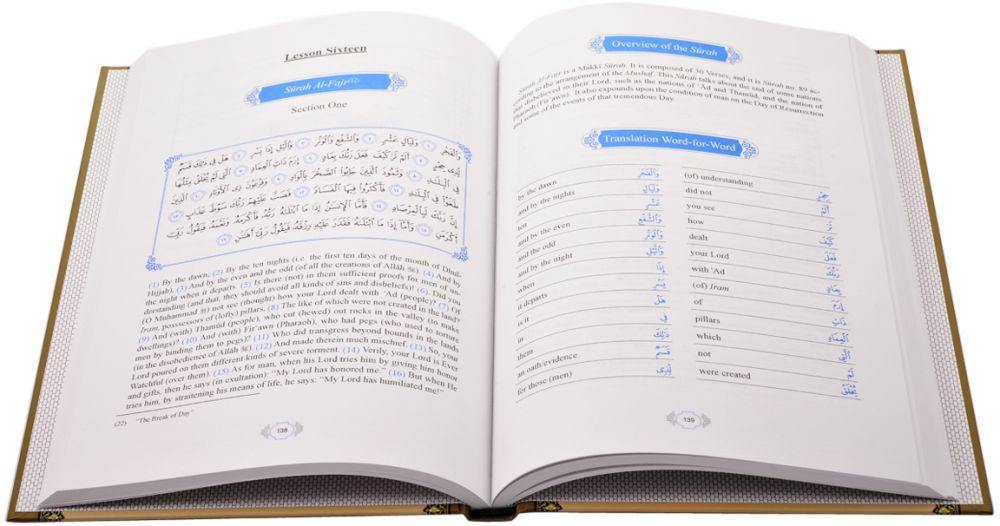 Lesson Sixteen
Sūrah Al-Fajr(22)
Section One
وَالْفَجْرِ ١ وَلَيَالٍ عَشْرٍ ٢ وَالشَّفْعِ وَالْوَتْرِ ٣ وَالَّيْلِ إِذَا يَسْرِ ٤ هَلْ فِي ذَٰلِكَ قَسَمٌ
لِّذِي حِجْرٍ ٥ أَلَمْ تَرَ كَيْفَ فَعَلَ رَبُّكَ بِعَادٍ ٦ إِرَمَ ذَاتِ الْعِمَادِ ٧ الَّتِي لَمْ يُخْلَقْ مِثْلُهَا
فِي الْبِلَٰدِ ٨ وَثَمُودَ الَّذِينَ جَابُوا الصَّخْرَ بِالْوَادِ ٩ وَفِرْعَوْنَ ذِي الْأَوْتَادِ ١٠ الَّذِينَ
طَغَوْا فِي الْبِلَٰدِ ١١ فَأَكْثَرُوا فِيهَا الْفَسَادَ ١٢ فَصَبَّ عَلَيْهِمْ رَبُّكَ سَوْطَ عَذَابٍ ١٣
إِنَّ رَبَّكَ لَبِالْمِرْصَادِ ١٤ فَأَمَّا الْإِنسَٰنُ إِذَا مَا ابْتَلَىٰهُ رَبُّهُ فَأَكْرَمَهُ وَنَعَّمَهُ فَيَقُولُ رَبِّي
أَكْرَمَنِ ١٥ وَأَمَّا إِذَا مَا ابْتَلَىٰهُ فَقَدَرَ عَلَيْهِ رِزْقَهُ فَيَقُولُ رَبِّي أَهَٰنَنِ ١٦
(1) By the dawn; (2) By the ten nights (i.e. the first ten days of the month of Dhul-
Hijjah), (3) And by the even and the odd (of all the creations of Allâh ﷻ). (4) And by
the night when it departs. (5) Is there (not) in them sufficient proofs for men of un-
derstanding (and that, they should avoid all kinds of sins and disbeliefs)? (6) Did you
(O Muhammad ﷺ) not see (thought) how your Lord dealt with 'Ad (people)? (7) Of
Iram, possessors of (lofty) pillars, (8) The like of which were not created in the land?
(9) And (with) Thamûd (people), who cut (hewed) out rocks in the valley (to make
dwellings)? (10) And (with) Fir'awn (Pharaoh), who had pegs (who used to torture
men by binding them to pegs)? (11) Who did transgress beyond bounds in the lands
(in the disobedience of Allâh ﷻ). (12) And made therein much mischief. (13) So, your
Lord poured on them different kinds of severe torment. (14) Verily, your Lord is Ever
Watchful (over them). (15) As for man, when his Lord tries him by giving him honor
and gifts, then he says (in exultation): "My Lord has honored me." (16) But when He
tries him, by straitening his means of life, he says: "My Lord has humiliated me!"
(22) "The Break of Day"
138
Overview of the Sūrah
Sūrah Al-Fajr is a Makkî Sūrah. It is composed of 30 Verses, and it is Sūrah no. 89 ac-
cording to the arrangement of the Mushaf. This Sūrah talks about the end of some nations
that disbelieved in their Lord, such as the nations of 'Âd and Thamûd, and the nation of
Pharaoh (Fir'awn). It also expounds upon the condition of man on the Day of Resurrection
and some of the events of that tremendous Day.
Translation Word-for-Word
by the dawn وَالْفَجْرِ
and by the nights وَلَيَالٍ
ten عَشْرٍ
and by the even وَالشَّفْعِ
and the odd وَالْوَتْرِ
and by the night وَالَّيْلِ
when إِذَا
it departs
is it هَلْ
in فِي
them ذَٰلِكَ
an oath/evidence قَسَمٌ
for those (men) لِّذِي
(of) understanding حِجْرٍ
did not أَلَمْ
you see تَرَ
how كَيْفَ
dealt فَعَلَ
your Lord رَبُّكَ
with 'Ad بِعَادٍ
(of) Iram إِرَمَ
of ذَاتِ
pillars
which الَّتِي
not لَمْ
were created يُخْلَقْ
139